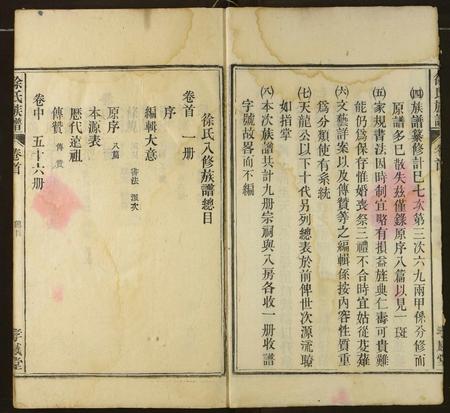 ㈣族譜纂修計已七次第三次六九兩甲係分修而
原譜多已散失茲僅錄原序八篇以見一斑
㈤家規書法因時制宜略有損益旌典仁壽可貴難
能仍爲保存惟婚喪祭三禮不合時宜姑從芟薙
㈥文藝詳案以及傳贊等之編輯係按內容性質重
爲分類使有系統
㈦天龍公以下十代另列總表於前俾世次源流瞭
如指掌
㈧本次族譜共計九册宗祠與八房各收一册收譜
字號故畧而不編
徐氏八修族譜總目
卷首 一册
序
編輯大意 書法 派次
原序 八篇
本源表
歷代遠祖
傳贊 傳 贊
卷中 五十六册
徐氏族譜 卷首
孝感堂